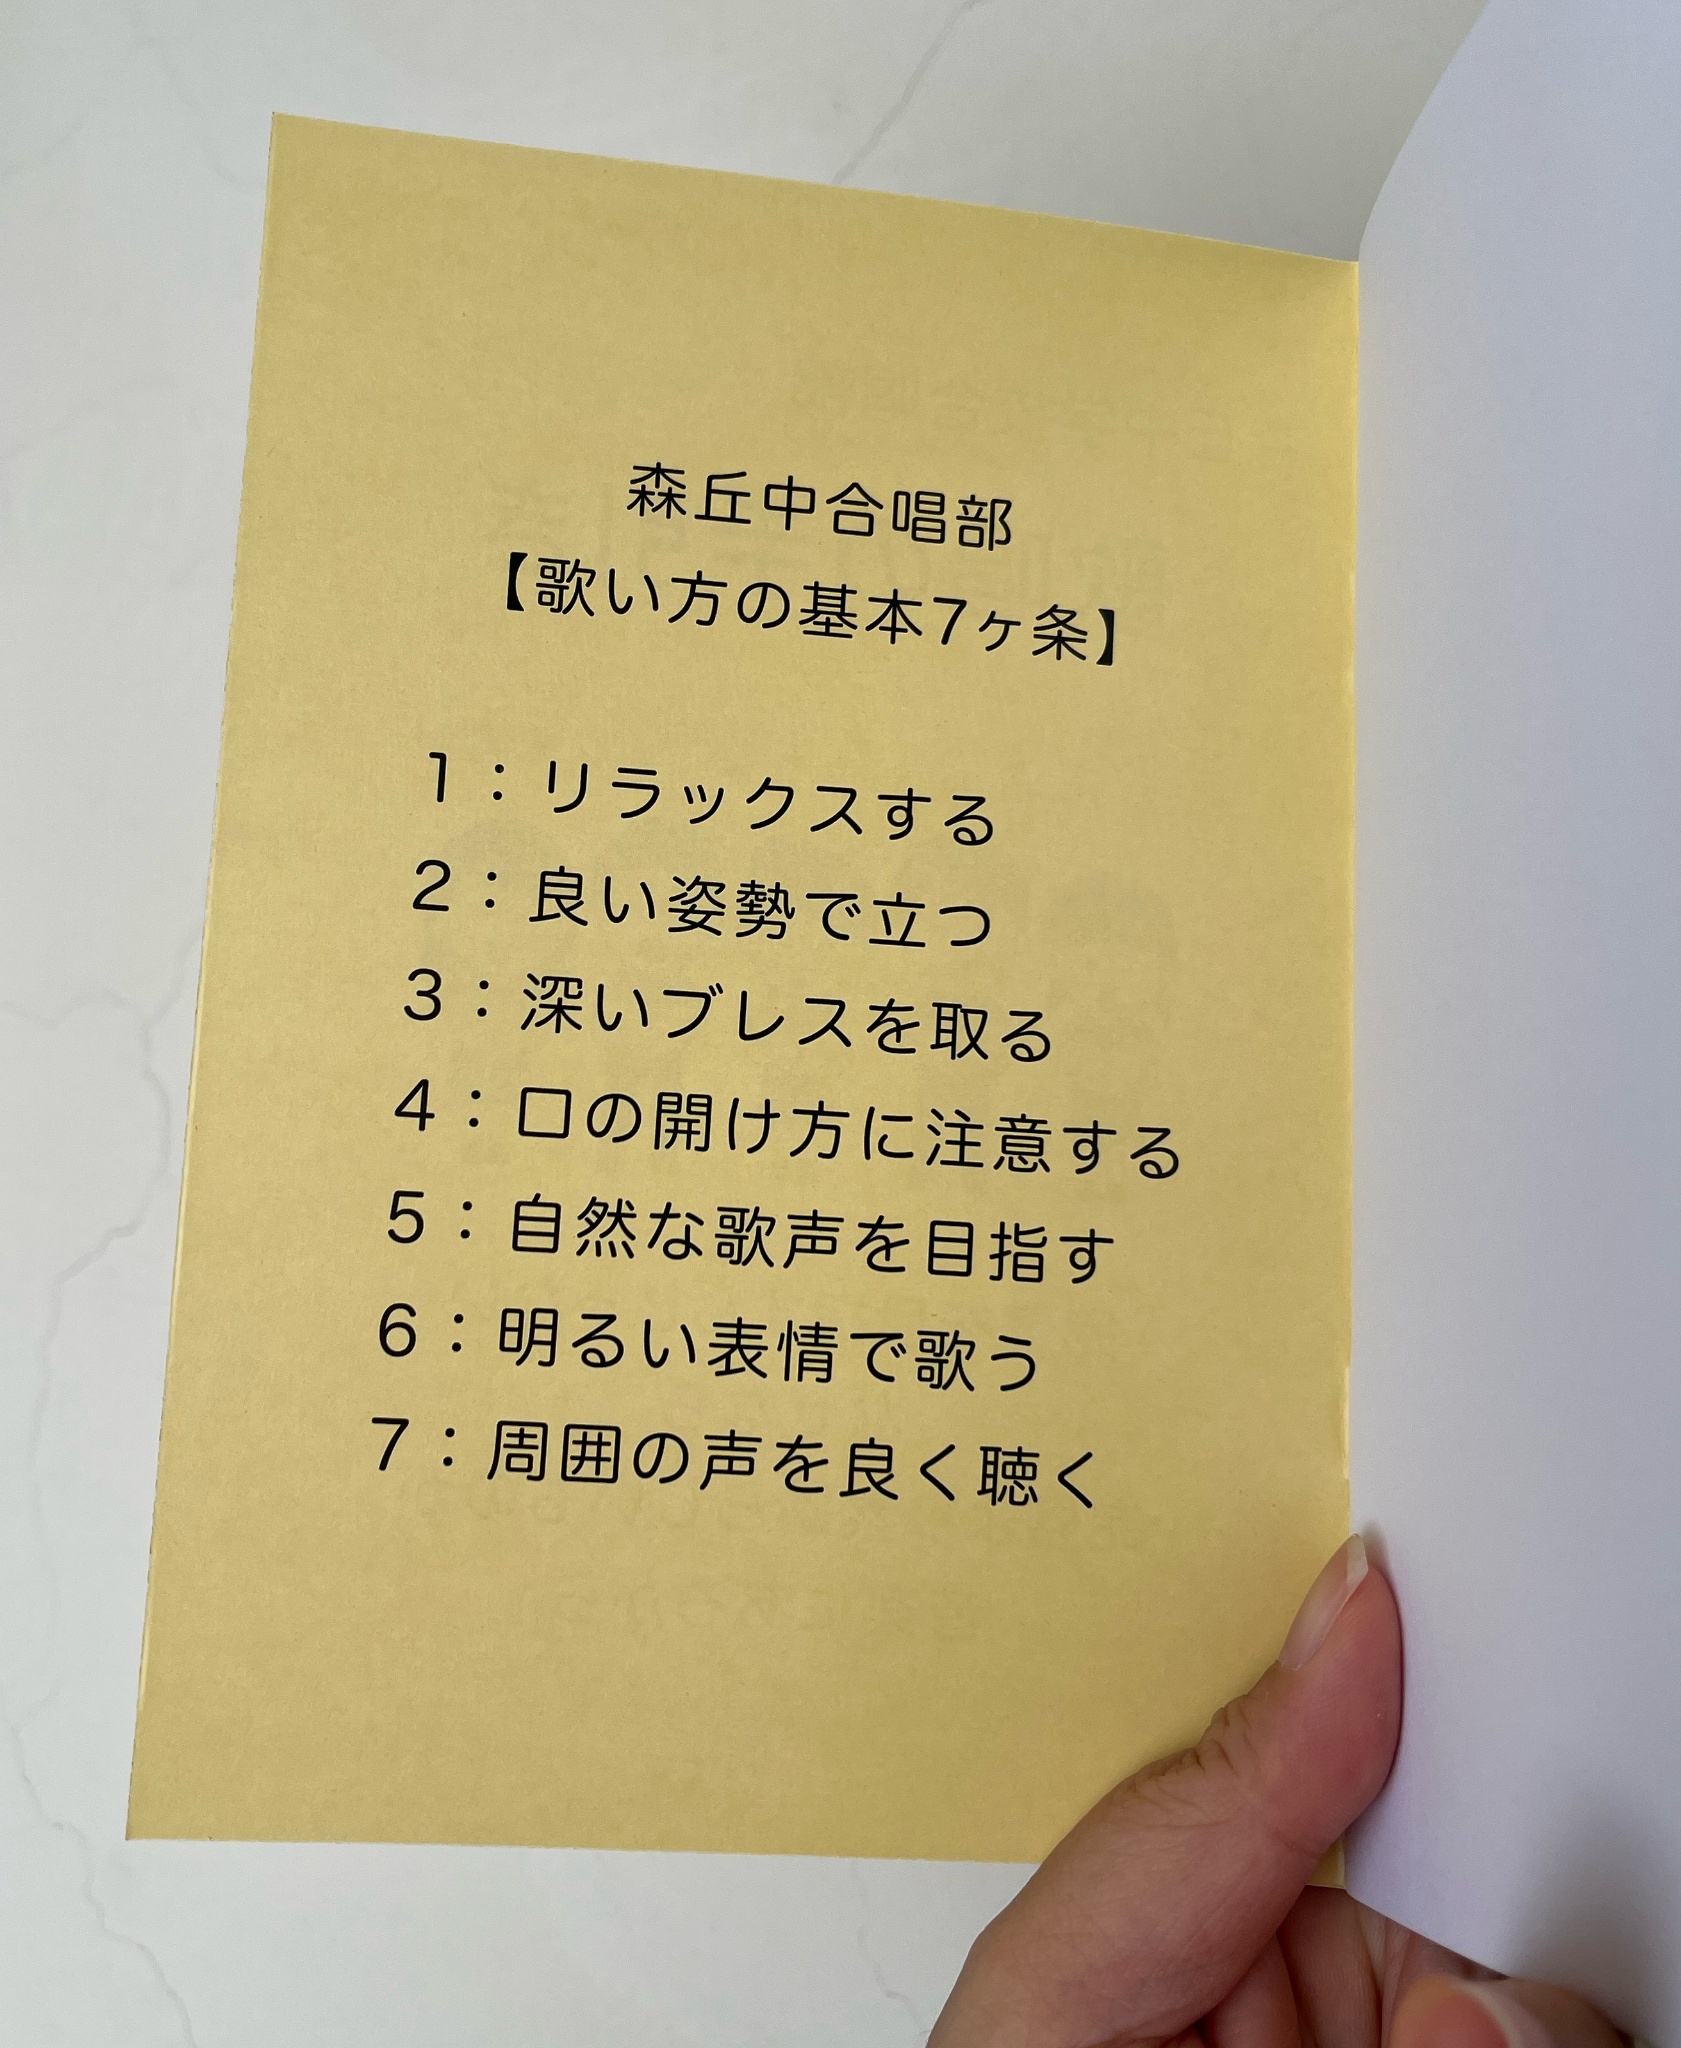 森丘中合唱部
【歌い方の基本7ヶ条】
1：リラックスする
2：良い姿勢で立つ
3：深いブレスを取る
4：口の開け方に注意する
5：自然な歌声を目指す
6：明るい表情で歌う
7：周囲の声を良く聴く